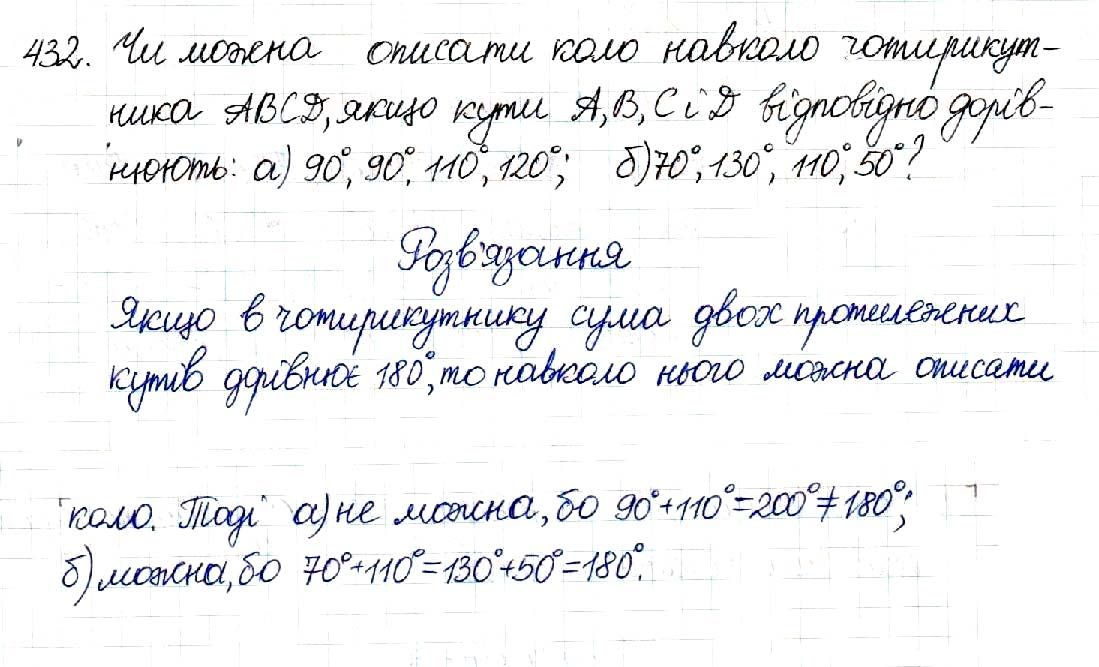 432. Чи можна описати коло навколо чотирикут-
ника ABCD, якщо кути A, B, C і D відповідно дорів-
нюють: а) 90°, 90°, 110°, 120°; б) 70°, 130°, 110°, 50°?
Розв'язання
Якщо в чотирикутнику сума двох протилежних
кутів дорівнює 180°, то навколо нього можна описати
коло. Тоді а) не можна, бо 90°+110°=200°≠180°;
б) можна, бо 70°+110°=130°+50°=180°.